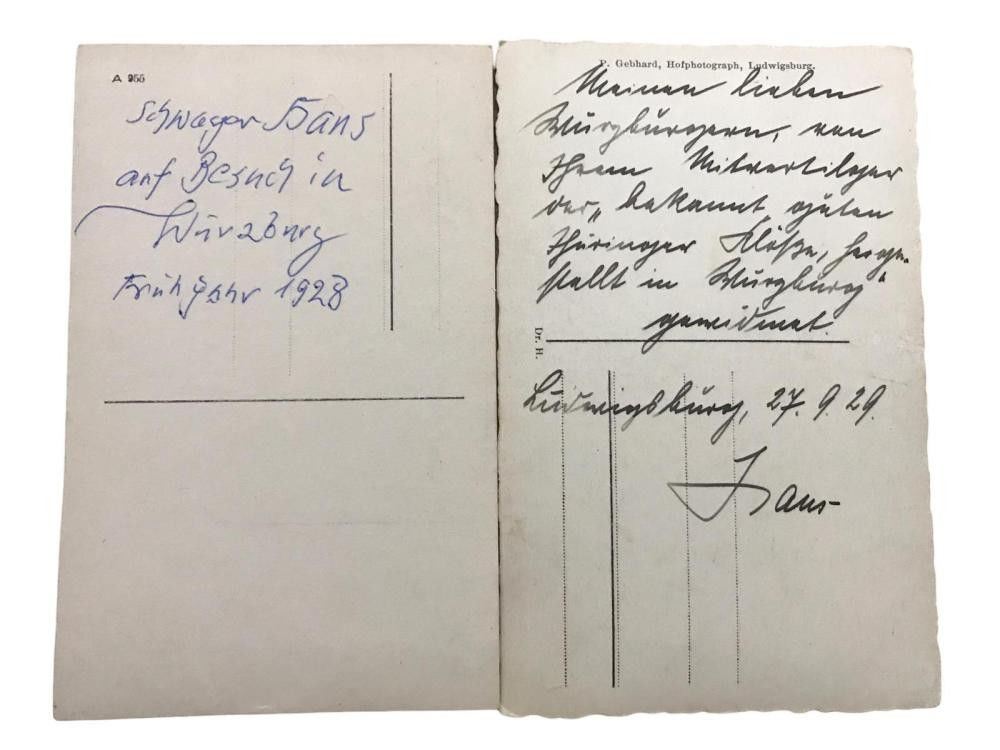 A 955
Schwager Hans
auf Besuch in
Würzburg
Frühjahr 1928
P. Gebhard, Hofphotograph, Ludwigsburg.
Meinen lieben
Würzburgern, von
Ihrem Mitvertilger
der „bekannt guten
Thüringer Klöße, herge-
stellt in Würzburg"
gewidmet.
Dr. H.
Ludwigsburg, 27. 9. 29.
Hans